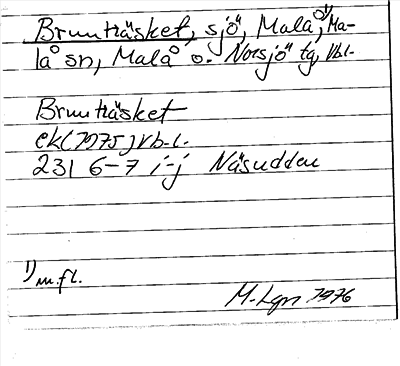 Brunträsket, sjö, Malå,¹⁾ Ma-
lå sn, Malå o. Norsjö tg, Vbl.
Brunträsket
ek(1975)Vb.l.
231 6-7 i-j Näsudden
¹⁾m.fl.
M.Lgn 1976